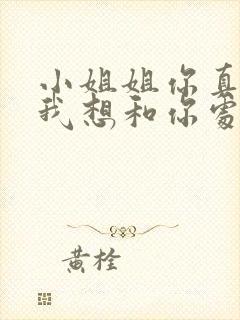 小姐姐你真
我想和你处
黄栓